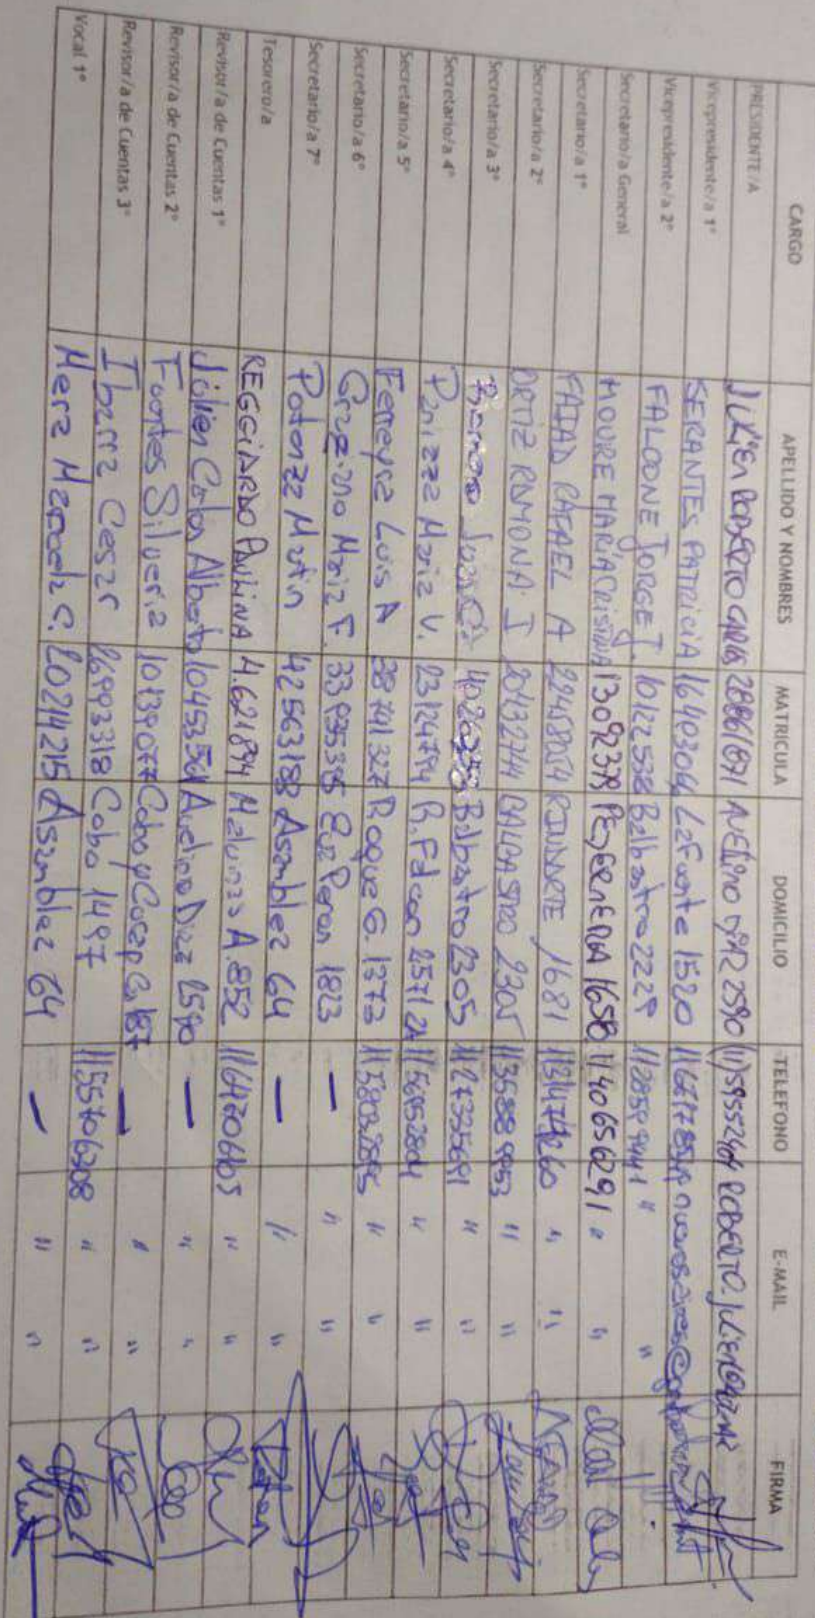 CARGO APELLIDO Y NOMBRES MATRICULA DOMICILIO TELEFONO E-MAIL FIRMA
PRESIDENTE/A ROBERTO CARLOS 28861871 AVELINO DIAZ 2590 (11)59552404
Vicepresidente/a 1° SERANTES PATRICIA 16403046 Lafuente 1520
Vicepresidente/a 2° FALDONE JORGE J. 10122538 Balbastro 2229 1128599441 " "
Secretario/a General MOURE MARÍA CRISTINA 13092379 1658 1140656291 " "
Secretario/a 1° RAFAEL A 22458054 1681 " "
Secretario/a 2° ORTIZ RAMONA I 20432744 BALBASTRO 2305 1135889953 " "
Secretario/a 3° Juan C. Balbastro 2305 1127335691 " "
Secretario/a 4° Panizza Maria V. 23124794 R. Falcon 2571 2A 1156952804 " "
Secretario/a 5° Ferreyra Luis A 38741327 Roque G. 1373 " "
Secretario/a 6° Graziano Maria F. 33935395 Eva Peron 1823 — " "
Secretario/a 7° Potenza Martin 42563188 Asamblea 64 — " "
Tesorero/a REGGIARDO PAULINA 4.621894 Malvinas A. 852 1164706605 " "
Revisor/a de Cuentas 1° Julien Carlos Alberto Avelino Diaz 2590 — " "
Revisor/a de Cuentas 2° Fuontes Silveria 10139077 Cobo y — " "
Revisor/a de Cuentas 3° Ibarra Cesar 26993318 Cobo 1497 1155706308 " "
Vocal 1° Merz Marcela C. 20214215 Asamblea 64 — " "